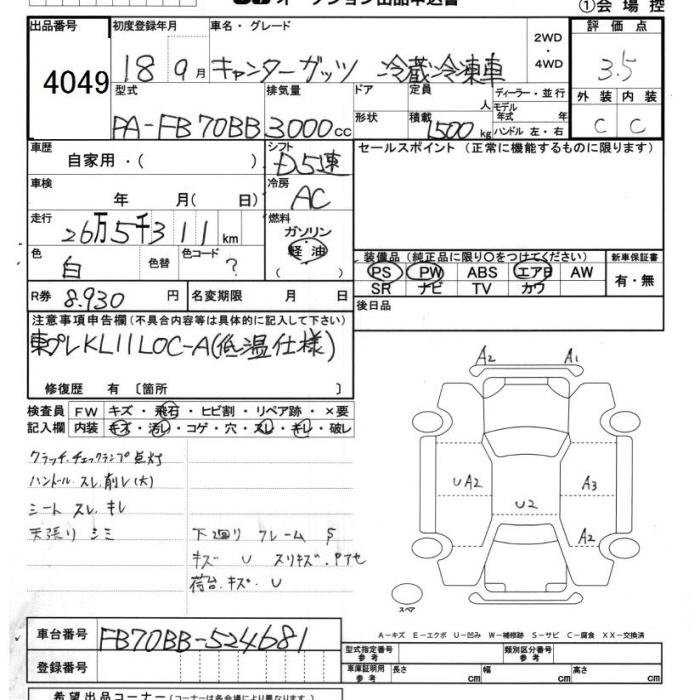 オークション出品申込書
①会場控
出品番号 初度登録年月 車名・グレード 2WD ・ 4WD 評価点
4049 18 9月 キャンターガッツ 冷蔵冷凍車 3.5
型式 排気量 ドア 定員 人 ディーラー・並行 外装 内装
モデル年式 年
PA-FB70BB 3000cc 形状 積載 1500kg ハンドル 左・右 C C
車歴 シフト セールスポイント (正常に機能するものに限ります)
自家用・( ) D5速
車検 冷房
年 月( 日) AC
走行 燃料
26万5千311km ガソリン
色 色替 色コード 軽油
白 ? ( )
装備品 (純正品に限り○をつけてください) 新車保証書
PS PW ABS エアB AW 有・無
SR ナビ TV カワ
R券 8.930 円 名変期限 月 日 後日品
注意事項申告欄(不具合内容等は具体的に記入して下さい)
東プレKL11LOC-A(低温仕様)
修復歴 有 〔箇所 〕
検査員 FW キズ・飛石・ヒビ割・リペア跡・×要
記入欄 内装 キズ・汚レ・コゲ・穴・スレ・キレ・破レ
クラッチ.チェックランプ点灯
ハンドル スレ.削レ(大)
シート スレ.キレ
天張り シミ
下廻り フレーム S
キズ U スリキズ.Pアセ
荷台.キズ.U
A2 A1
UA2 A3
U2
A2
スペア
A－キズ E－エクボ U－凹み W－補修跡 S－サビ C－腐食 XX－交換済
車台番号 FB70BB-524681
登録番号
型式指定番号 参考 類別区分番号 参考
車庫証明用 参考 長さ cm 幅 cm 高さ cm
希望出品コーナー(コーナーは各会場により異なります。)